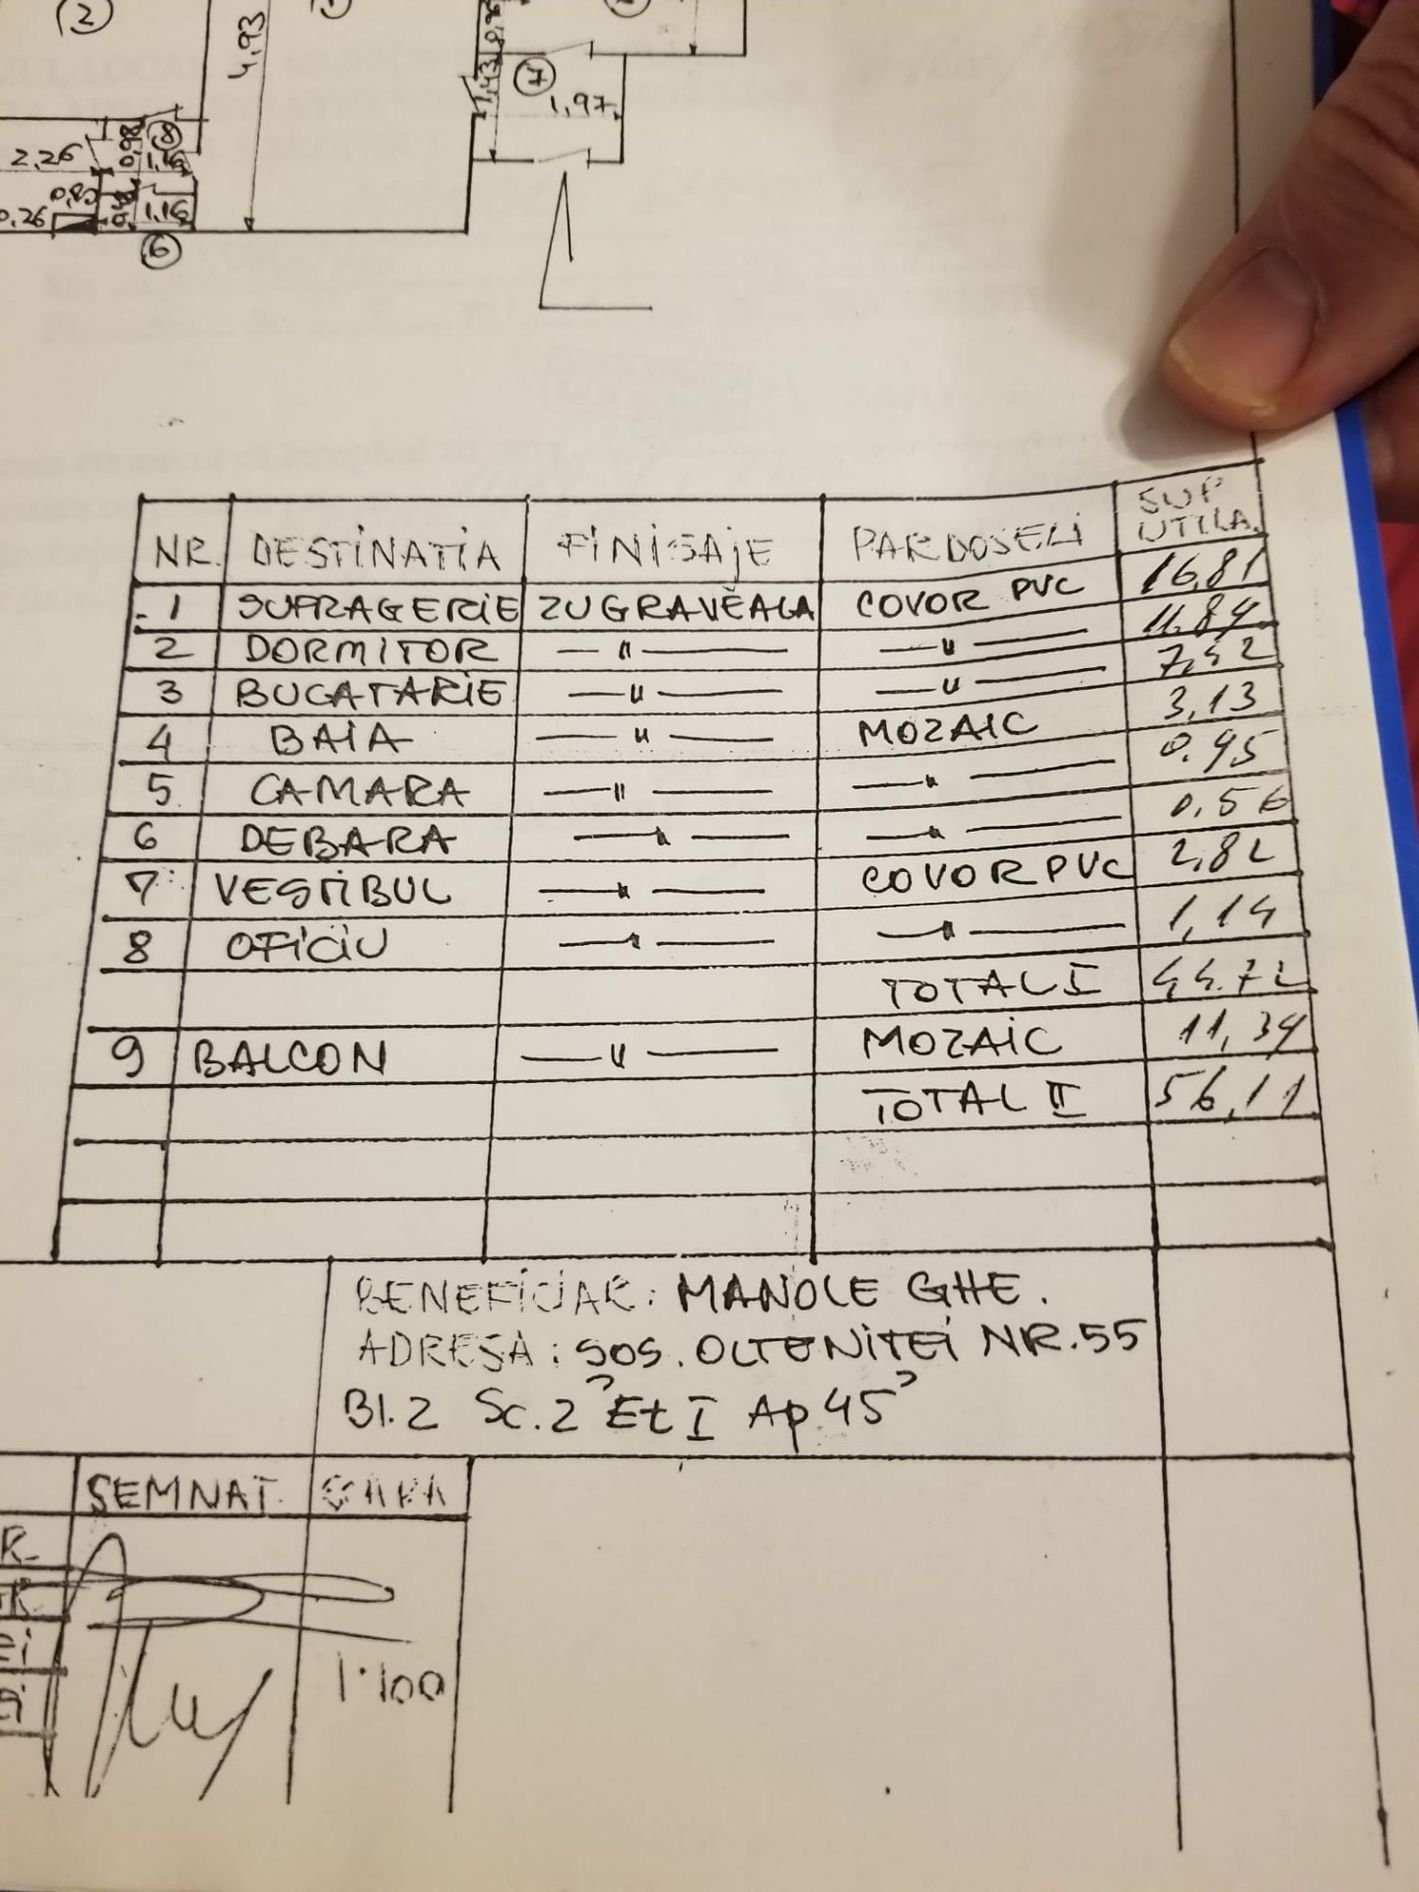 2
4,93
1,43
7
1,97
2.26
0,98
8
1,16
0,26
1,16
6
NR. DESTINATIA FINISAJE PARDOSELI SUP UTILA.
1 SUFRAGERIE ZUGRAVEALA COVOR PVC 16,81
2 DORMITOR —"— —"— 11.84
3 BUCATARIE —"— —"— 7,52
4 BAIA —"— MOZAIC 3,13
5 CAMARA —"— —"— 0.95
6 DEBARA —"— —"— 0,56
7 VESTIBUL —"— COVOR PVC 2,82
8 OFICIU —"— —"— 1,14
TOTAL I 44.72
9 BALCON —"— MOZAIC 11,39
TOTAL II 56,11
BENEFICIAR: MANOLE GHE.
ADRESA: SOS. OLTENITEI NR.55
Bl.2 Sc.2 Et I Ap 45
SEMNAT. SCARA
1:100